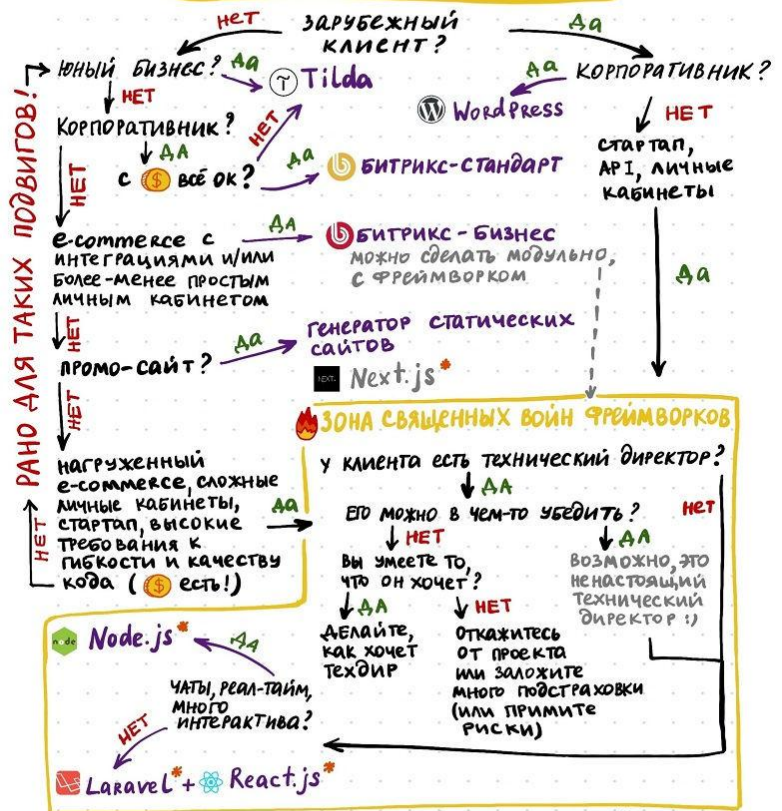 НЕТ
ЗАРУБЕЖНЫЙ
КЛИЕНТ?
ДА
ЮНЫЙ БИЗНЕС?
ДА
Tilda
НЕТ
КОРПОРАТИВНИК?
ДА
С $ ВСЁ ОК?
НЕТ
ДА
БИТРИКС-СТАНДАРТ
КОРПОРАТИВНИК?
ДА
WordPress
НЕТ
СТАРТАП,
API, ЛИЧНЫЕ
КАБИНЕТЫ
ДА
НЕТ
e-commerce С
ИНТЕГРАЦИЯМИ И/ИЛИ
БОЛЕЕ-МЕНЕЕ ПРОСТЫМ
ЛИЧНЫМ КАБИНЕТОМ
ДА
БИТРИКС - БИЗНЕС
МОЖНО СДЕЛАТЬ МОДУЛЬНО,
С ФРЕЙМВОРКОМ
НЕТ
ПРОМО-САЙТ?
ДА
ГЕНЕРАТОР СТАТИЧЕСКИХ
САЙТОВ
NEXT.
Next.js*
НЕТ
НАГРУЖЕННЫЙ
e-commerce, СЛОЖНЫЕ
ЛИЧНЫЕ КАБИНЕТЫ,
СТАРТАП, ВЫСОКИЕ
ТРЕБОВАНИЯ К
ГИБКОСТИ И КАЧЕСТВУ
КОДА ($ ЕСТЬ!)
ДА
НЕТ
РАНО ДЛЯ ТАКИХ ПОДВИГОВ!
ЗОНА СВЯЩЕННЫХ ВОЙН ФРЕЙМВОРКОВ
У КЛИЕНТА ЕСТЬ ТЕХНИЧЕСКИЙ ДИРЕКТОР?
ДА
НЕТ
ЕГО МОЖНО В ЧЕМ-ТО УБЕДИТЬ?
НЕТ
ДА
ВЫ УМЕЕТЕ ТО,
ЧТО ОН ХОЧЕТ?
ВОЗМОЖНО, ЭТО
НЕНАСТОЯЩИЙ
ТЕХНИЧЕСКИЙ
ДИРЕКТОР :)
ДА
ДЕЛАЙТЕ,
КАК ХОЧЕТ
ТЕХДИР
НЕТ
ОТКАЖИТЕСЬ
ОТ ПРОЕКТА
ИЛИ ЗАЛОЖИТЕ
МНОГО ПОДСТРАХОВКИ
(ИЛИ ПРИМИТЕ
РИСКИ)
node
Node.js*
ДА
ЧАТЫ, РЕАЛ-ТАЙМ,
МНОГО
ИНТЕРАКТИВА?
НЕТ
Laravel* + React.js*